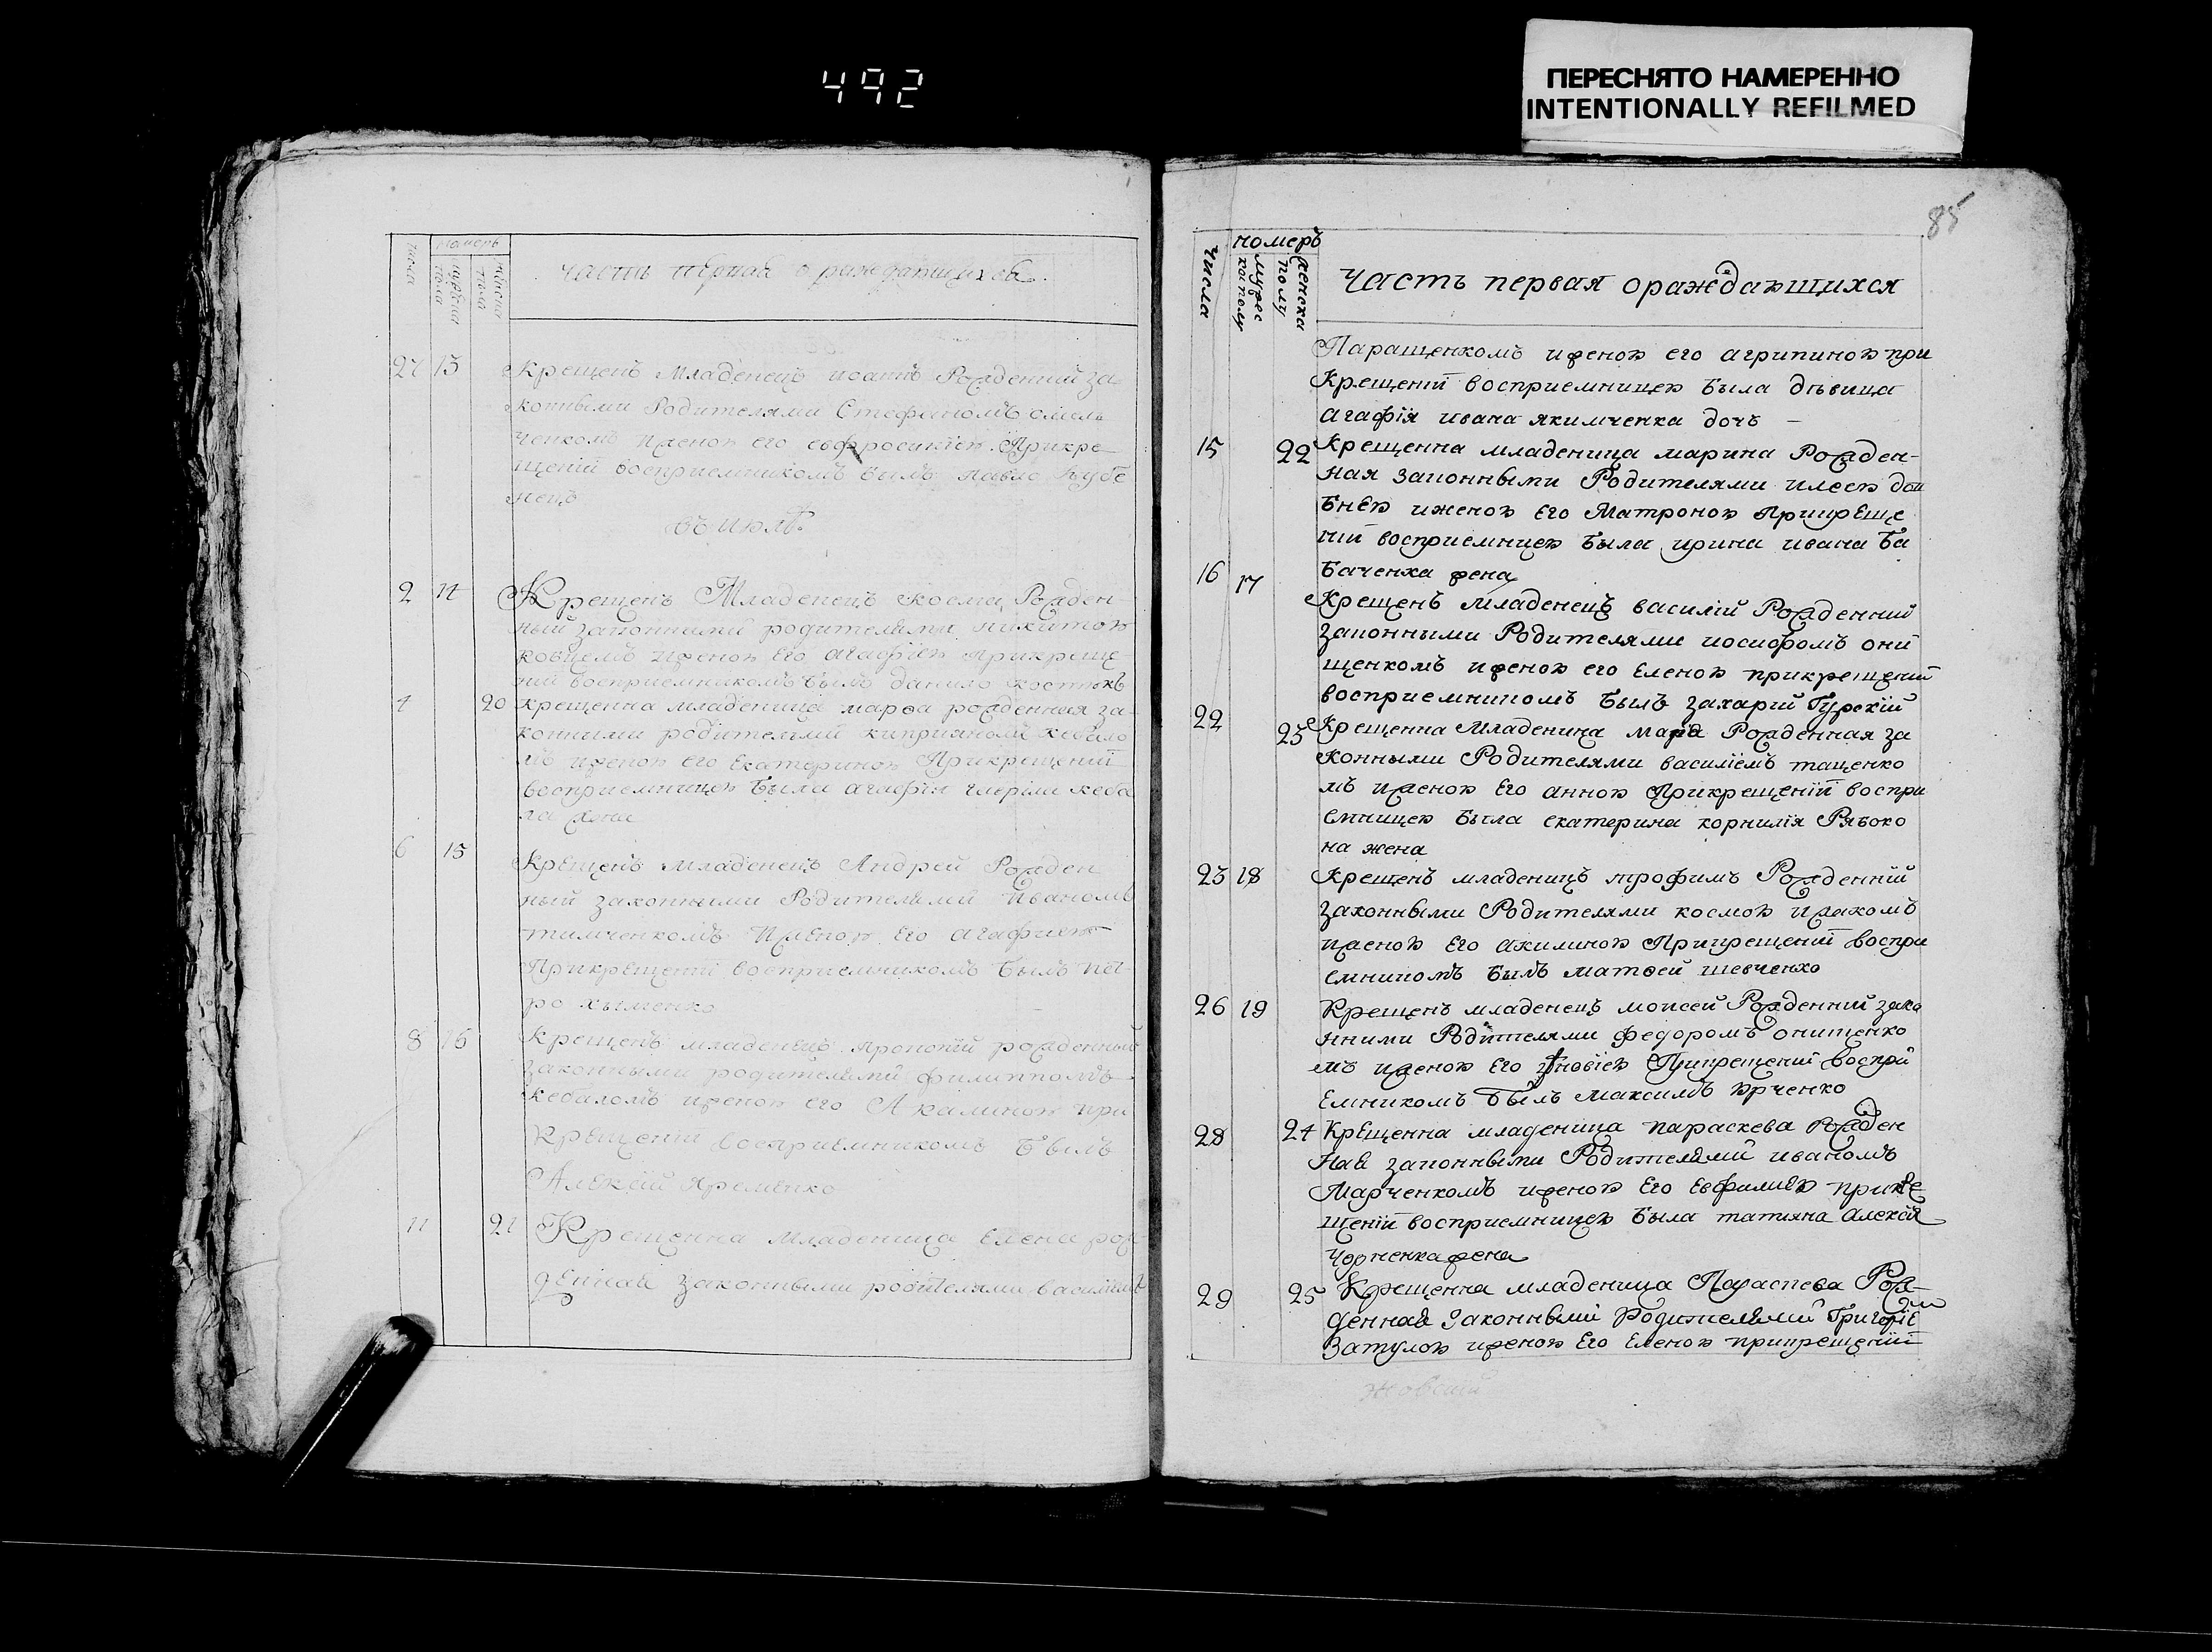 492
ПЕРЕСНЯТО НАМЕРЕННО
INTENTIONALLY REFILMED
числа
номеръ
часть первая о раждающихся
27 13 Крещенъ Младенецъ иоаннъ Рожденний за
конными Родителями Стефаномъ омель
ченкомъ иженою его евфросиніею Прикре
щеніи восприемникомъ былъ павло
нецъ
въ июлѣ
2 14 Крещенъ Младенецъ косма Рожден
ный законными родителями никитою
иженою его агафіею прикреще
ніи восприемникомъ былъ данило
4 20 Крещенна младеница марѳа рожденная за
конними родителями киприяномъ кебало
мъ иженою его Екатериною Прикрещеніи
восприемницею была агафія кеба
ла жена
6 15 Крещенъ младенецъ Андрей Рожден
ный законными Родителями Иваномъ
тимченкомъ иженою его агафиею
Прикрещеніи восприемникомъ былъ пет
ро хыменко
8 16 Крещенъ младенецъ прокопій рожденный
законными родителями филиппомъ
кебаломъ иженою его Акилиною при
Крещеніи восприемникомъ былъ
Алексій яременко
11 21 Крещенна младеница елена рож
денная законными родителями василиемъ
85
числа
номеръ
мужес
кополу
женска
полу
часть первая ораждающихся
Паращенкомъ иженою его агрипиною при
Крещеніи восприемницею была дѣвица
агафія ивана якимченка дочь –
15 22 Крещенна младеница марина Рожден-
ная законными Родителями илеею дои
бнею иженою его Матроною Прикреще
ніи восприемницею была ирина ивана ба
баченка жена
16 17 Крещенъ младенецъ василій Рожденний
законными Родителями иосифомъ они
щенкомъ иженою его еленою прикрещеніи
восприемникомъ былъ захарій Гурскій
22 23 Крещенна Младеница марѳа Рожденная за
конными Родителями василіемъ тащенко
мъ иженою его анною Прикрещеніи воспри
емницею была екатерина корнилія Рябоко
на жена
23 18 Крещенъ младеницъ трофимъ Рожденній
законными Родителями космою ижакомъ
иженою его акилиною Прикрещеніи воспри
емникомъ былъ матѳей шевченко
26 19 Крещенъ младенецъ моисей Рожденний зако
нними Родителями федоромъ онищенко
мъ иженою его зѣновіею Прикрещеніи воспри
емникомъ былъ максимъ юрченко
28 24 Крещенна младеница параскева Рожден
ная законными Родителями иваномъ
Марченкомъ иженою его евфимиею прикре
щеніи восприемницею была татіяна алексія
чорненка жена
29 25 Крещенна младеница Параскева Рож-
денная законными Родителями Григоріемъ
Затулою иженою его еленою прикрещеніи